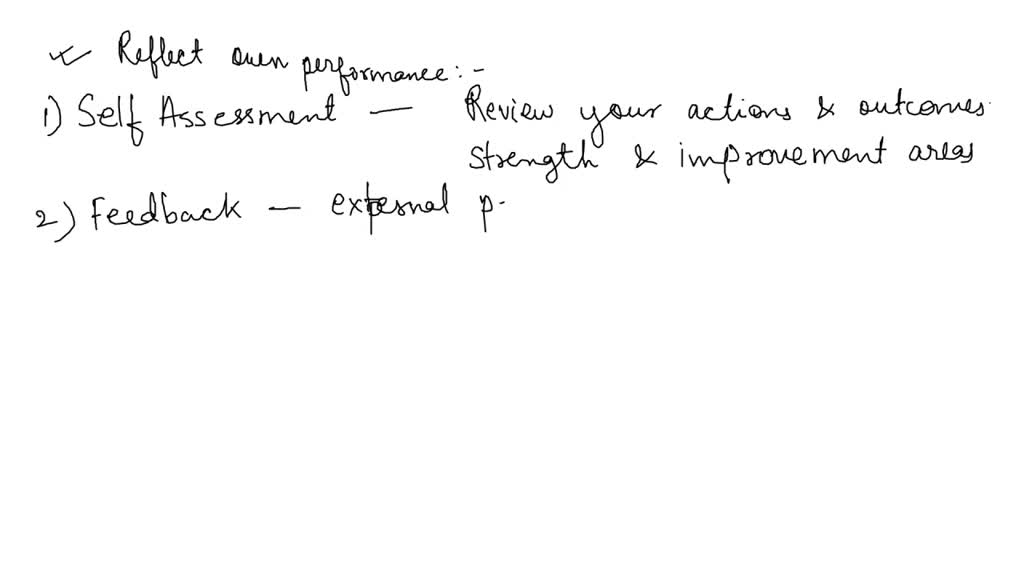 Reflect own performance:-
1) Self Assessment — Review your actions & outcomes
Strength & improvement areas
2) Feedback — external p